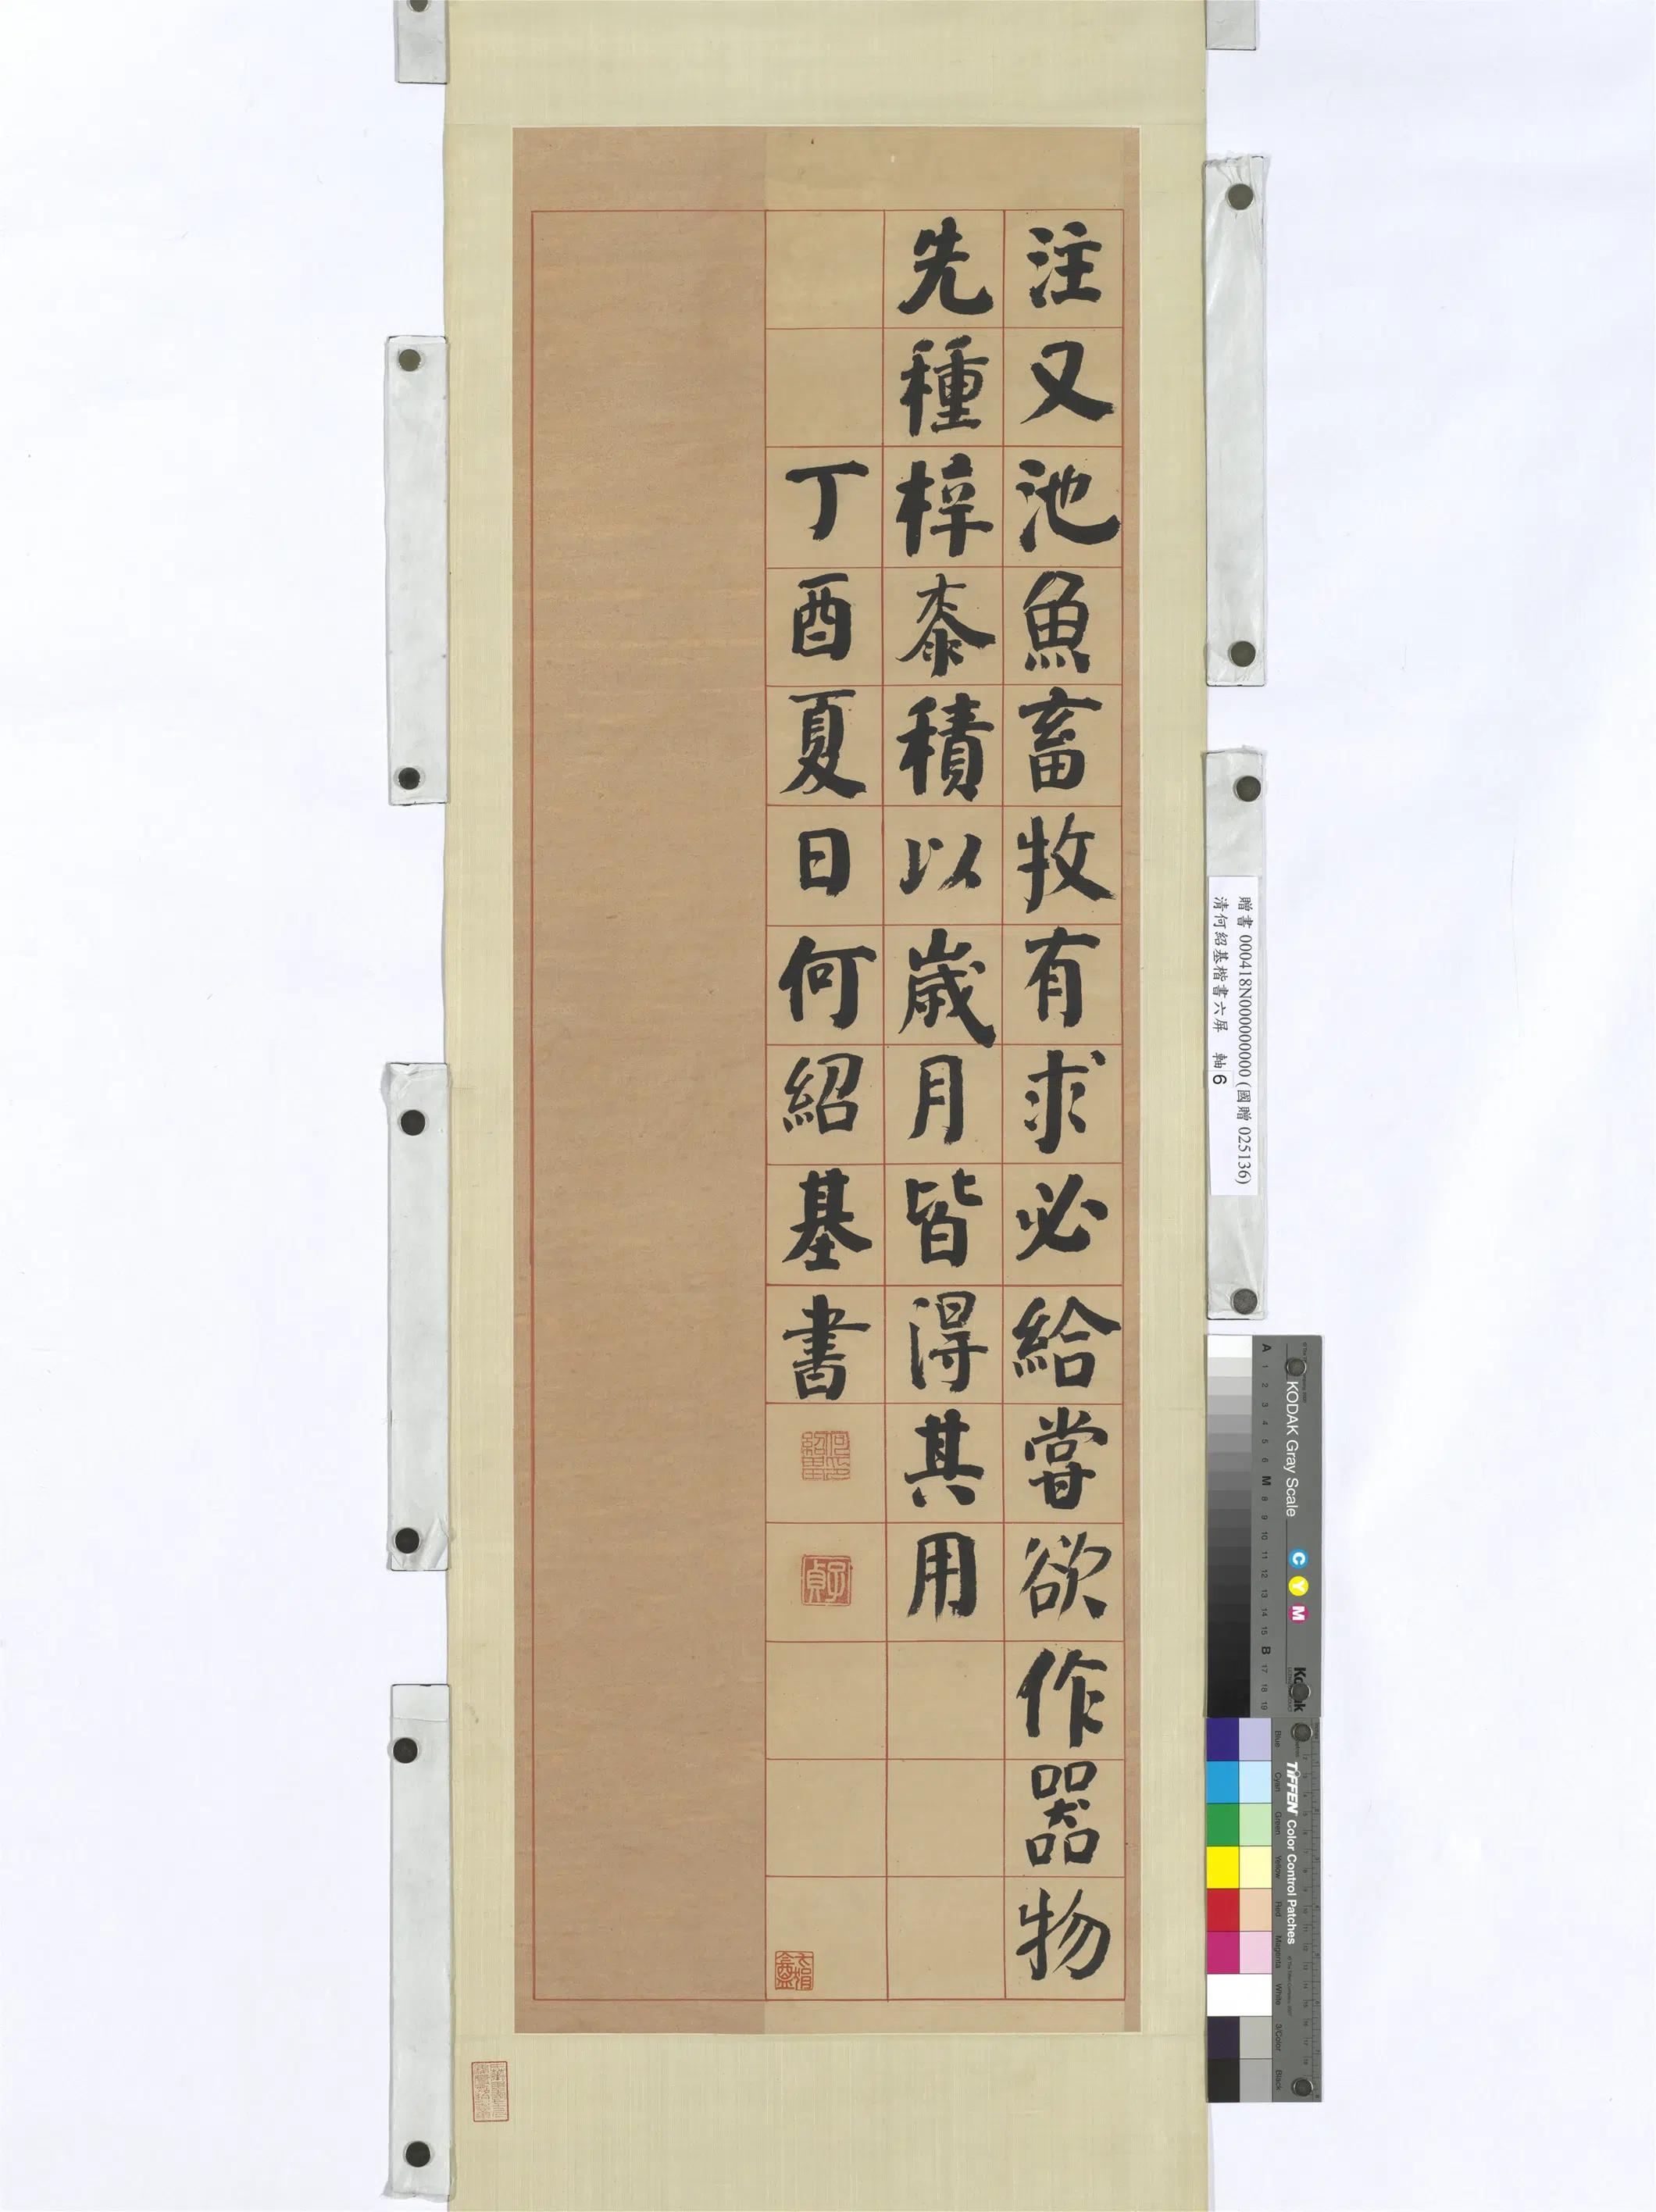 注又池魚畜牧有求必給嘗欲作器物
先種梓桼積以歲月皆得其用
丁酉夏日何紹基書
何紹基印
子貞
贈書 000418N000000000 (國贈 025136)
清何紹基楷書六屏 軸6
KODAK Gray Scale
C Y M
Kodak
A 1 2 3 4 5 6 M 8 9 10 11 12 13 14 15 B 17 18 19
TIFFEN Color Control Patches
Blue Cyan Green Yellow Red Magenta White 3/Color Black